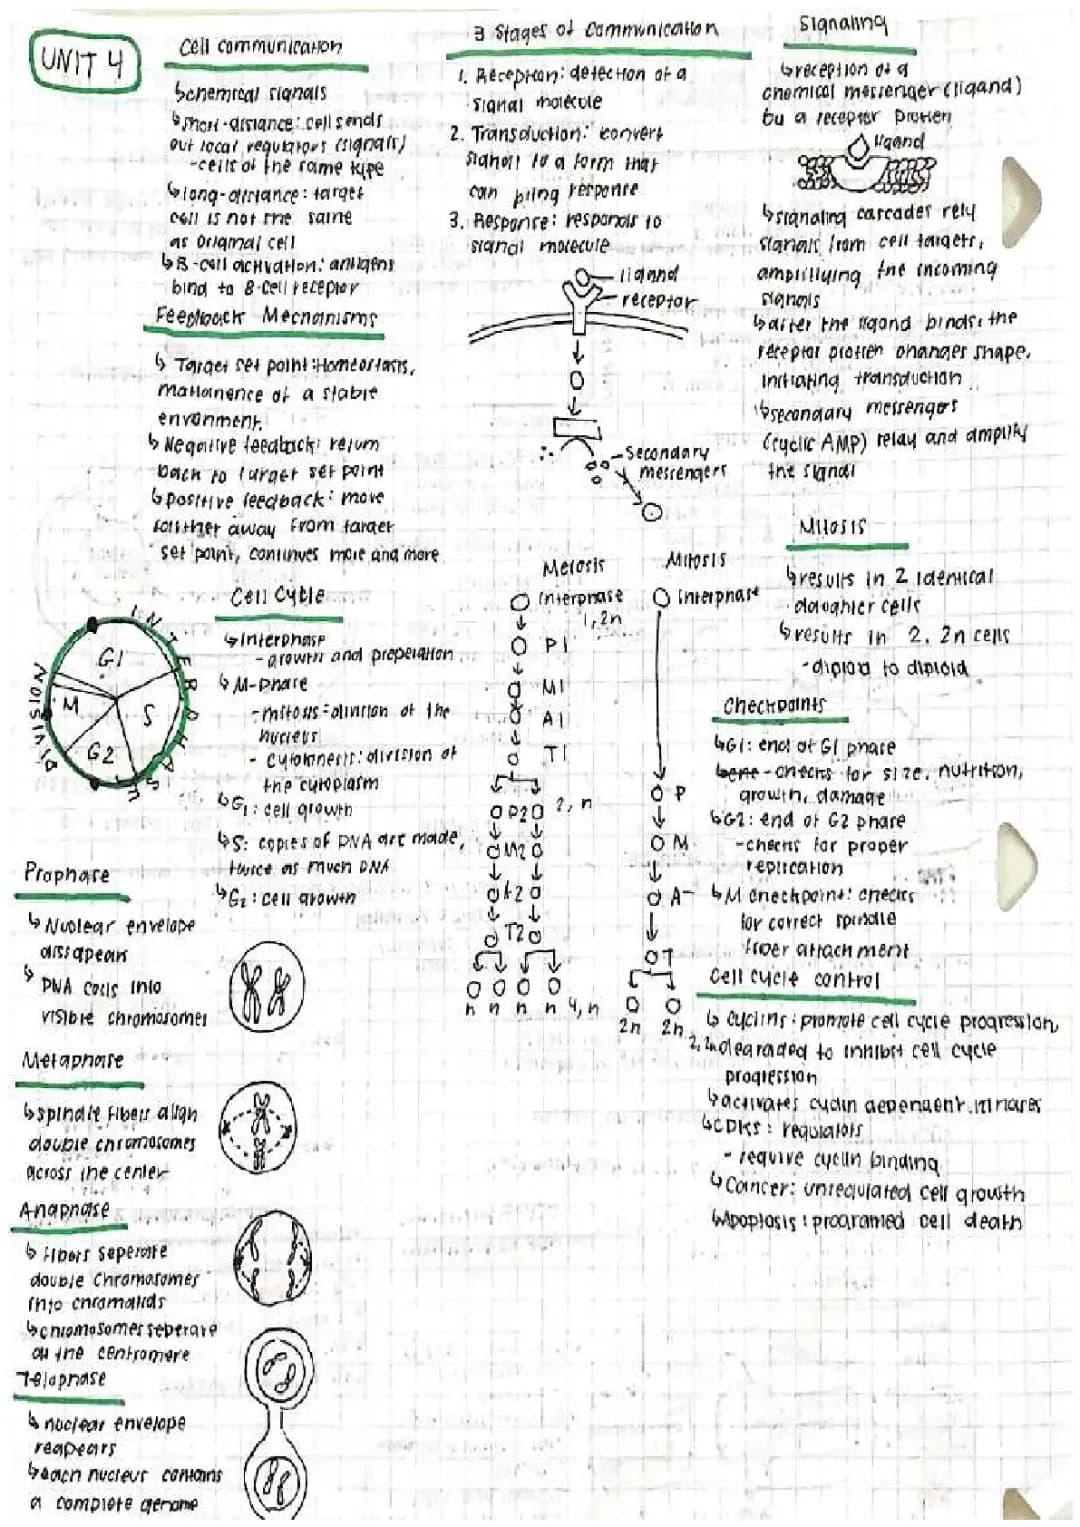 UNIT 4
Cell communication
↳ chemical signals
↳ short-distance: cell sends
out local regulators (signals)
-cells of the same type
↳ long-distance: target
cell is not the same
as original cell
↳ B-cell activation: antigens
bind to B-cell receptor
Feedback Mechanisms
↳ Target set point: Homeostasis,
of a stable
↳ Negative feedback: return
back to target set point
↳ positive feedback: move
farther away from target
set point, continues more and more
3 Stages of Communication
1. Reception: detection of a
signal molecule
2. Transduction: convert
signal to a form that
can bring response
3. Response: responds to
signal molecule
ligand
receptor
Secondary
messengers
Signaling
↳ reception of a
chemical messenger (ligand)
by a receptor protein
ligand
↳ signaling cascades rely
signals from cell targets,
amplifying the incoming
signals
↳ after the ligand binds, the
receptor protein changes shape,
initiating transduction
↳ secondary messengers
(cyclic AMP) relay and amplify
the signal
Cell Cycle
↳ Interphase
- growth and
↳ M-phase
- mitosis: division of the
nucleus
- cytokinesis: division of
the cytoplasm
↳ G1: cell growth
↳ S: copies of DNA are made,
twice as much DNA
↳ G2: cell growth
INTERPHASE
DIVISION
G1
S
G2
M
Meiosis
Interphase
1, 2n
P1
M1
A1
T1
P2
2, n
M2
A2
T2
n n n n 4, n
Mitosis
Interphase
P
M
A
T
2n 2n
2, 2n
Mitosis
↳ results in 2 identical
daughter cells
↳ results in 2, 2n cells
-diploid to diploid
Checkpoints
↳ G1: end of G1 phase
-checks for size, nutrition,
growth, damage
↳ G2: end of G2 phase
-checks for proper
replication
↳ M checkpoint: checks
for correct spindle
fiber attachment
Cell cycle control
↳ cyclins: promote cell cycle progression,
degraded to inhibit cell cycle
progression
↳ activates cyclin dependent kinases
↳ CDKs: regulators
- require cyclin binding
↳ Cancer: unregulated cell growth
↳ Apoptosis: programed cell death
Prophase
↳ Nuclear envelope
dissapears
↳ DNA coils into
visible chromosomes
Metaphase
↳ spindle fibers align
double chromosomes
across the center
Anaphase
↳ fibers seperate
double chromosomes
into chromatids
↳ chromosomes seperate
at the centromere
Telophase
↳ nuclear envelope
reapears
↳ each nucleus contains
a complete genome